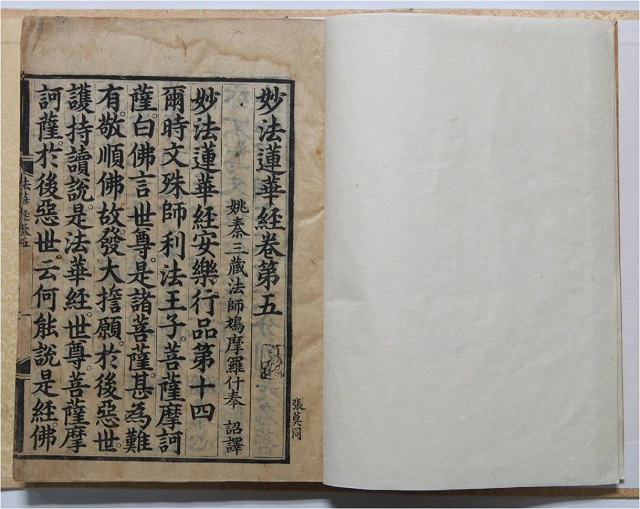 妙法蓮華經卷第五
姚秦三藏法師鳩摩羅什奉 詔譯
妙法蓮華經安樂行品第十四
爾時文殊師利法王子。菩薩摩訶
薩。白佛言。世尊。是諸菩薩。甚為難
有。敬順佛故。發大誓願。於後惡世。
護持讀說是法華經。世尊。菩薩摩
訶薩。於後惡世。云何能說是經。佛
法華經卷五
張莫同